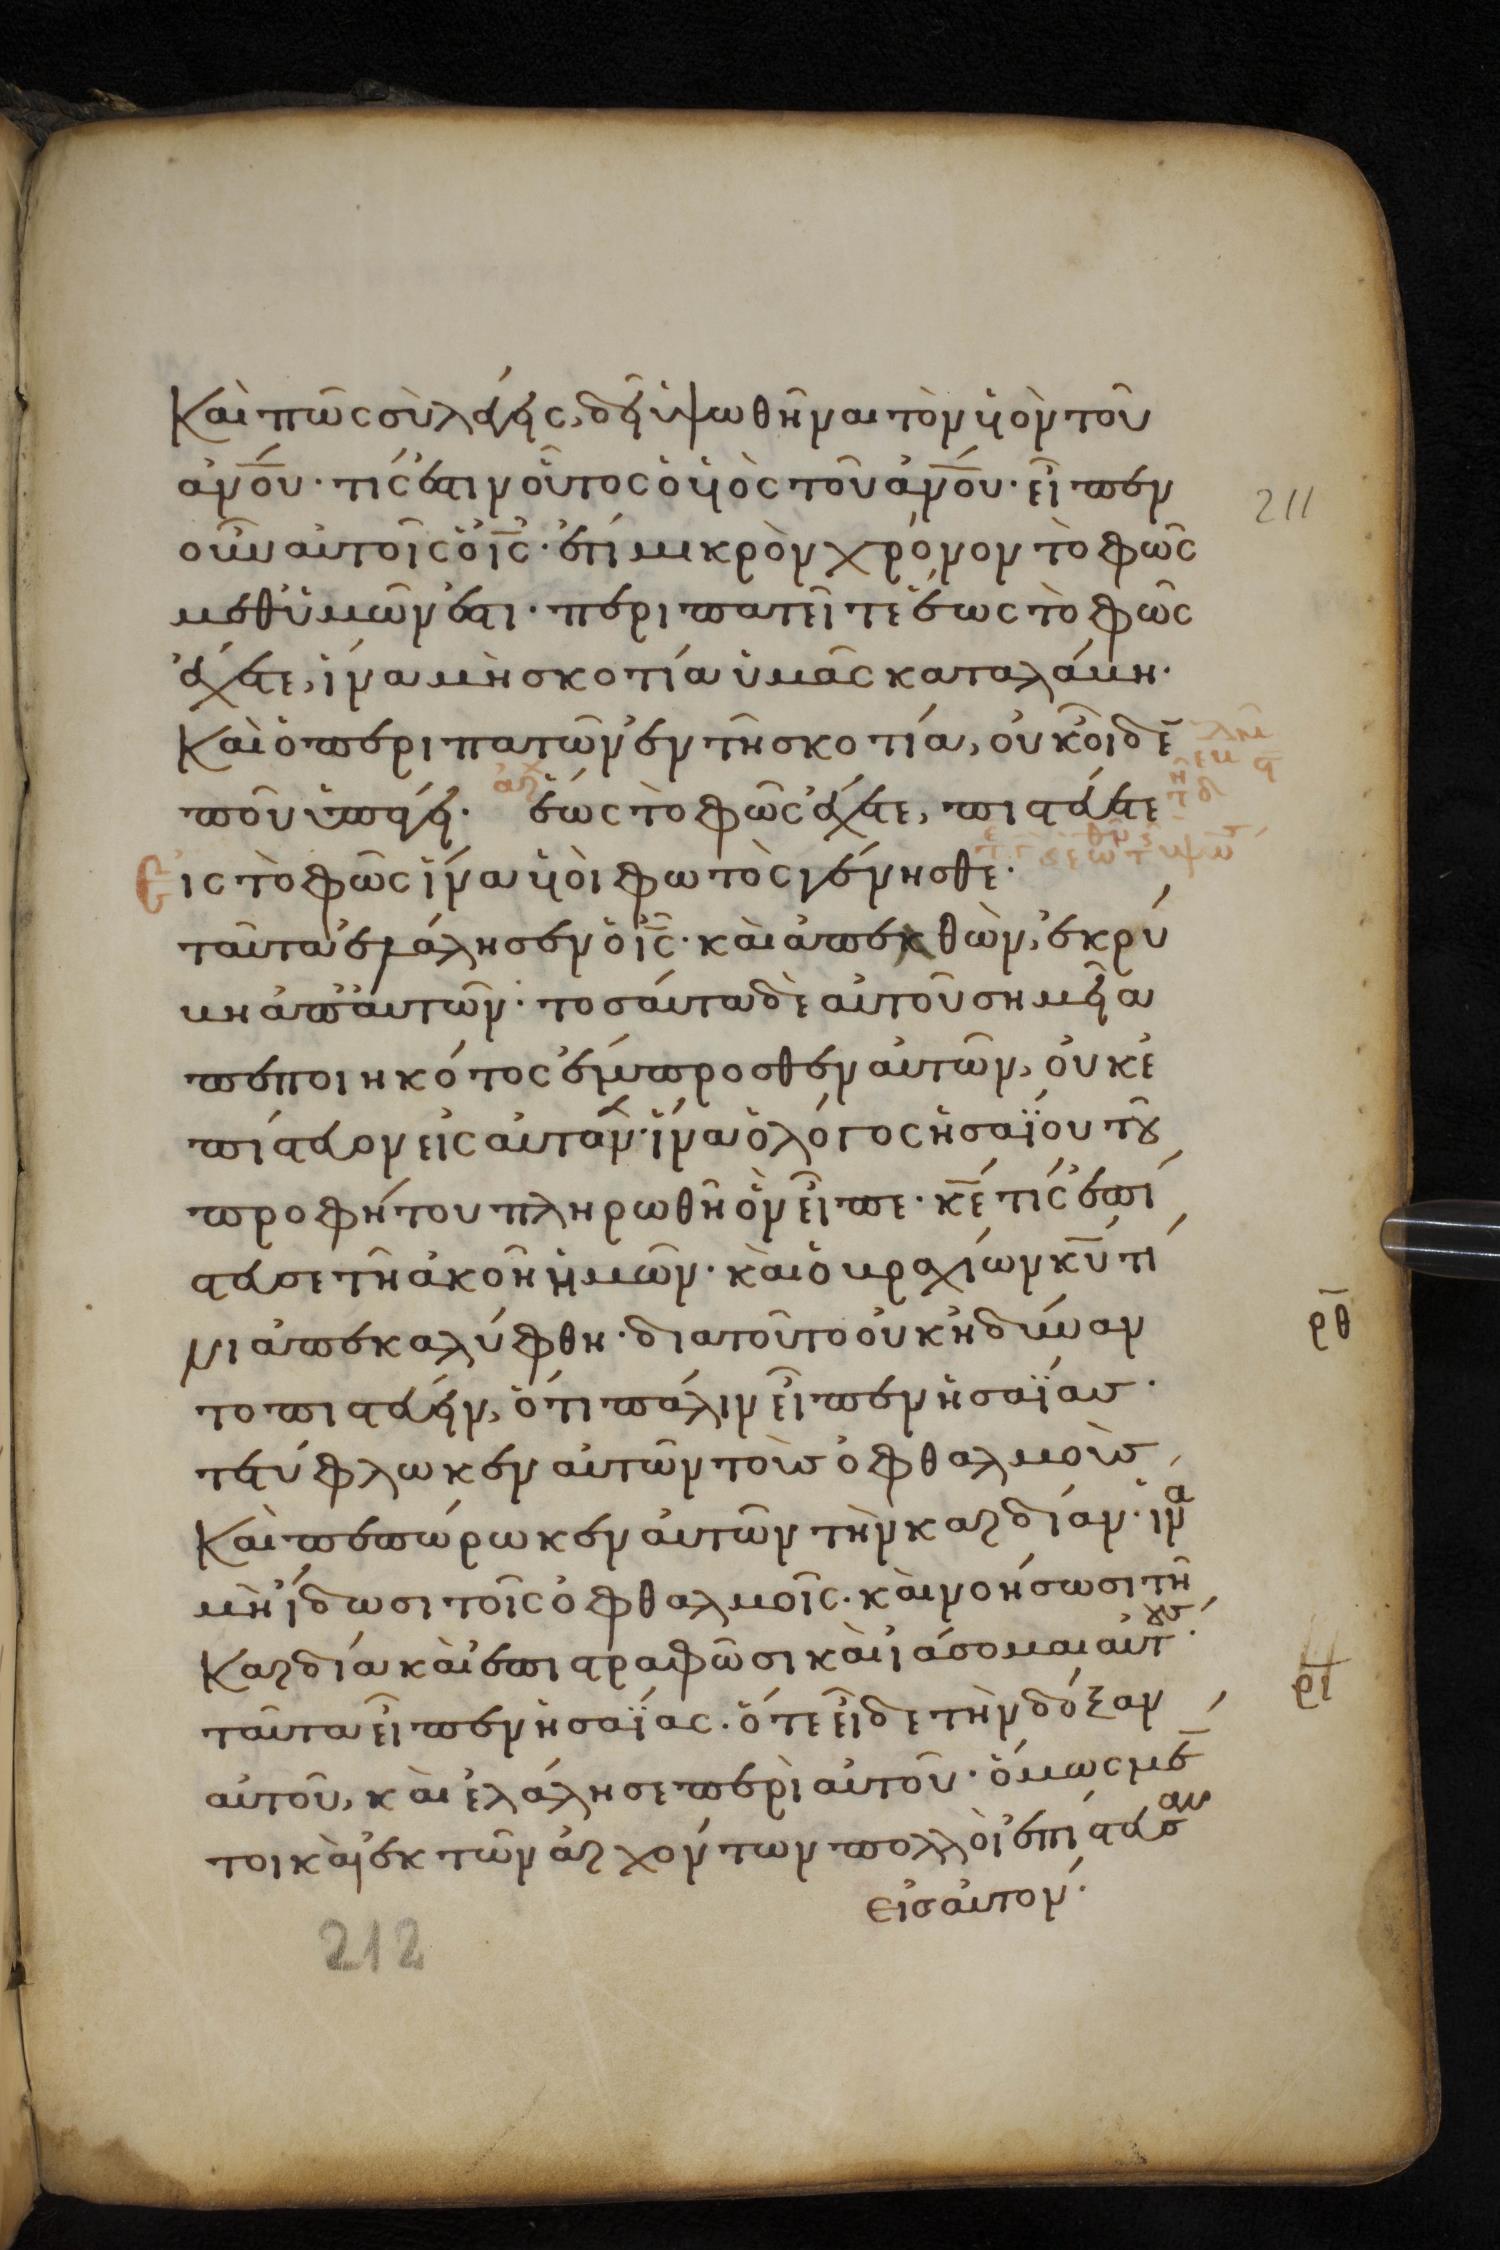 Καὶ πῶς σὺ λέγεις, δεῖ ὑψωθῆναι τὸν υἱὸν τοῦ
ἀν̅ο̅υ· τίς ἐστιν οὗτος ὁ υἱὸς τοῦ ἀν̅ο̅υ· εἶπεν
211
οὖν αὐτοῖς ὁ ἰ̅ς̅· ἔτι μικρὸν χρόνον τὸ φῶς
μεθ' ὑμῶν ἐστι· περιπατεῖτε ἕως τὸ φῶς
ἔχετε, ἵνα μὴ σκοτία ὑμᾶς καταλάβη·
Καὶ ὁ περιπατῶν ἐν τῆ σκοτία, οὐκ οἶδε
ποῦ ὑπάγει· ἕως τὸ φῶς ἔχετε, πιστεύετε
εἰς τὸ φῶς ἵνα υἱοὶ φωτὸς γένησθε·
ταῦτα ἐλάλησεν ὁ ἰ̅ς̅· καὶ ἀπελθὼν, ἐκρύ
βη ἀπ' αὐτῶν· τοσαῦτα δὲ αὐτοῦ σημεῖα
πεποιηκότος ἔμπροσθεν αὐτῶν, οὐκ ἐ
πίστευον εἰς αὐτόν· ἵνα ὁ λόγος ἡσαΐου τοῦ
προφήτου πληρωθῆ ὃν εἶπε· κ̅ε̅ τίς ἐπί
στευσε τῆ ἀκοῆ ἡμῶν· καὶ ὁ βραχίων κ̅υ̅ τί
νι ἀπεκαλύφθη· διατοῦτο οὐκ ἠδύναν
ρ̅θ̅
το πιστεύειν, ὅτι πάλιν εἶπεν ἡσαΐας·
τετύφλωκεν αὐτῶν τοὺς ὀφθαλμοὺς,
Καὶ πεπώρωκεν αὐτῶν τὴν καρδίαν· ἵνα
μὴ ἴδωσι τοῖς ὀφθαλμοῖς· καὶ νοήσωσι τῆ
Καρδία καὶ ἐπιστραφῶσι καὶ ἰάσομαι αὐτούς·
ρ̅ι̅
ταῦτα εἶπεν ἡσαΐας· ὅτε εἶδε τὴν δόξαν
αὐτοῦ, καὶ ἐλάλησε περὶ αὐτοῦ· ὅμως μέν
τοι καὶ ἐκ τῶν ἀρχόντων πολλοὶ ἐπίστευσαν
εἰς αὐτόν·
212